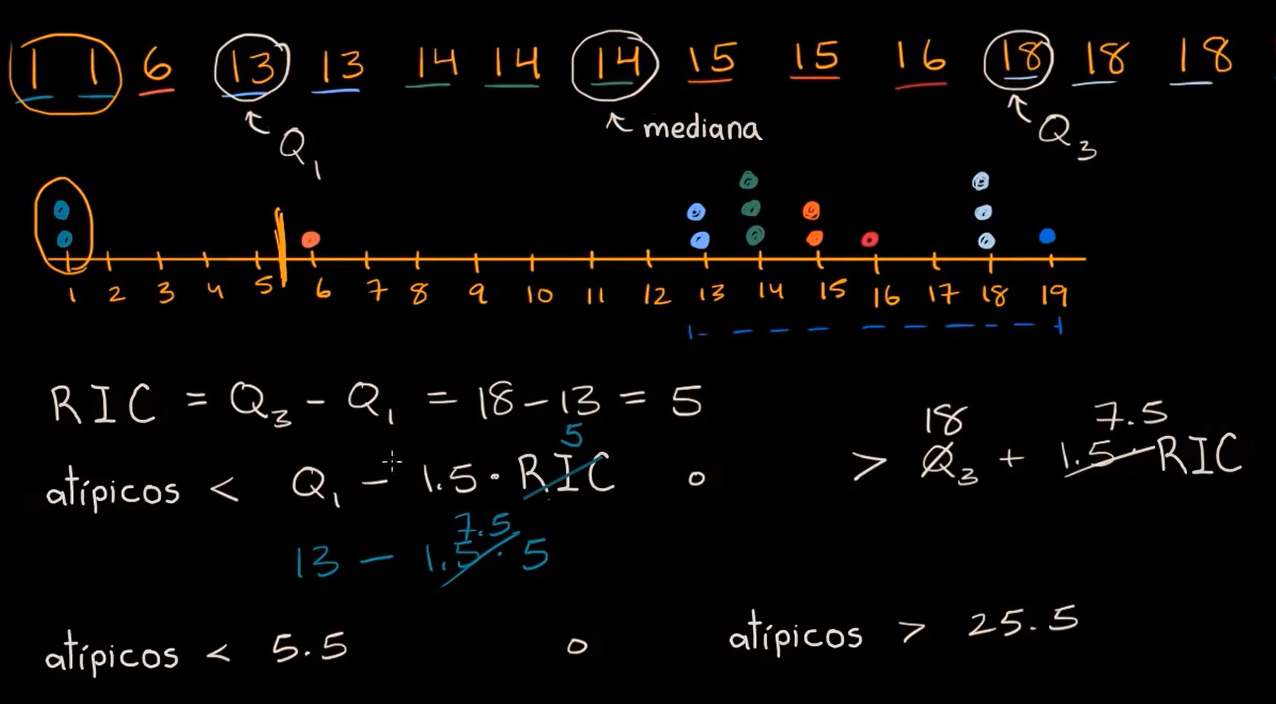 1 1 6 13 13 14 14 14 15 15 16 18 18 18
Q₁ mediana Q₃
1 2 3 4 5 6 7 8 9 10 11 12 13 14 15 16 17 18 19
RIC = Q₃ - Q₁ = 18 - 13 = 5
5 18 7.5
atípicos < Q₁ - 1.5 · RIC o > Q₃ + 1.5 · RIC
7.5
13 - 1.5 · 5
atípicos < 5.5 o atípicos > 25.5